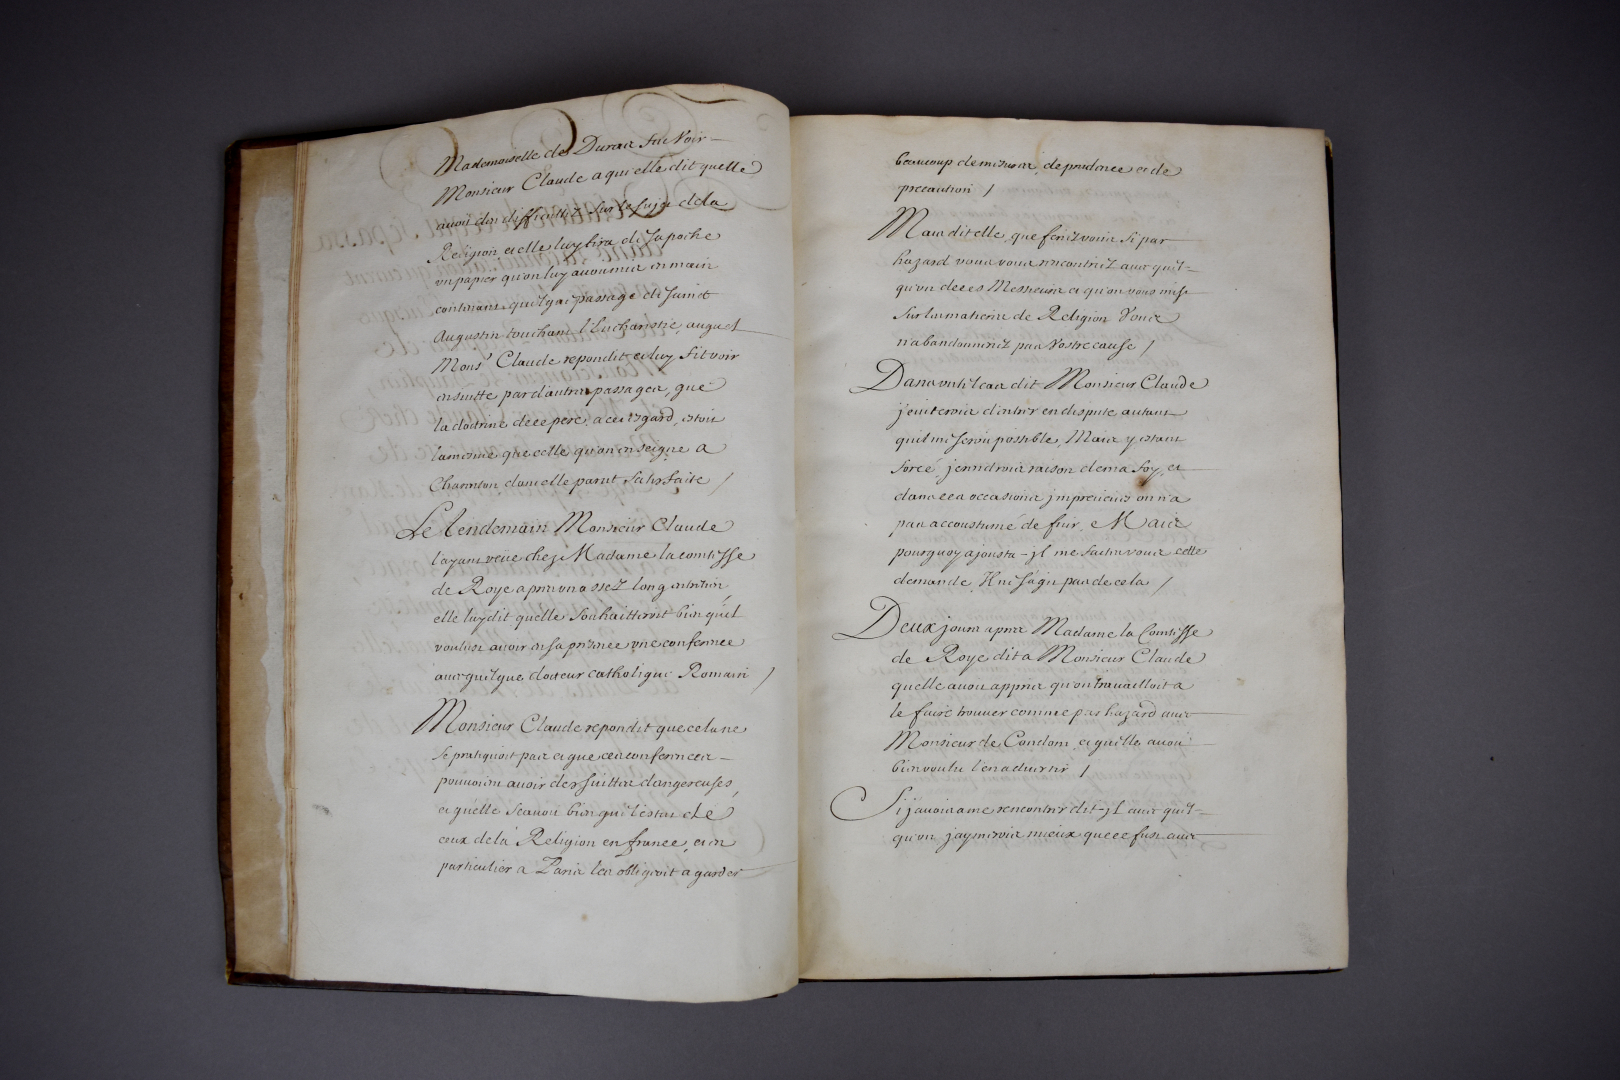 Mademoiselle de Duras fut Voir
Monsieur Claude a qui elle dit quelle
avoit des difficultez sur le sujet de la
Religion et elle luy tira de sa poche
un papier qu'on luy avoit mis en main
contenant quelque passage de Saint
Augustin touchant l'Eucharistie, auquel
Mons.r Claude repondit et luy fit voir
ensuitte par d'autres passages, que
la doctrine de ce pere, a cet esgard, estoit
la mesme que celle qu'on enseigne a
Charenton dont elle parut satisfaite /
Le lendemain Monsieur Claude
l'ayant veüe chez Madame la comtesse
de Roye apres un assez long entretien
elle luy dit quelle souhaitteroit bien qu'il
voulust avoir en sa presence une conference
avec quelque docteur catholique Romain /
Monsieur Claude repondit que cela ne
se pratiquoit pas et que ces conferences
pouvoient avoir des suittes dangereuses,
et quelle scavoit bien que l'estat de
ceux de la Religion en france, et en
particulier a Paris les obligeoit a garder
beaucoup de mesures, de prudence et de
precaution /
Mais dit elle, que feriez vous si par
hazard vous vous rencontriez avec quel-
qu'un de ces Messieurs et qu'on vous mist
sur les matieres de Religion Vous
n'abandonneriez pas Vostre cause /
Dans un tel cas dit Monsieur Claude
j'eviterois d'entrer en dispute autant
quil me seroit possible, Mais y estant
forcé, j'en rendrois raison de ma foy, et
dans ces occasions jmpreveües on n'a
pas accoustumé de fuir, Mais
pourquoy ajousta-jl me faites vous cette
demande, Il ne s'agit pas de cela /
Deux jours apres Madame la Comtesse
de Roye dit a Monsieur Claude
quelle avoit appris qu'on travailloit a
le faire trouver comme par hazard avec
Monsieur de Condom, et quelle avoit
bien voulu l'en advertir /
Si j'avois a me rencontrer dit-jl avec quel-
qu'un j'aymerois mieux que ce fust avec